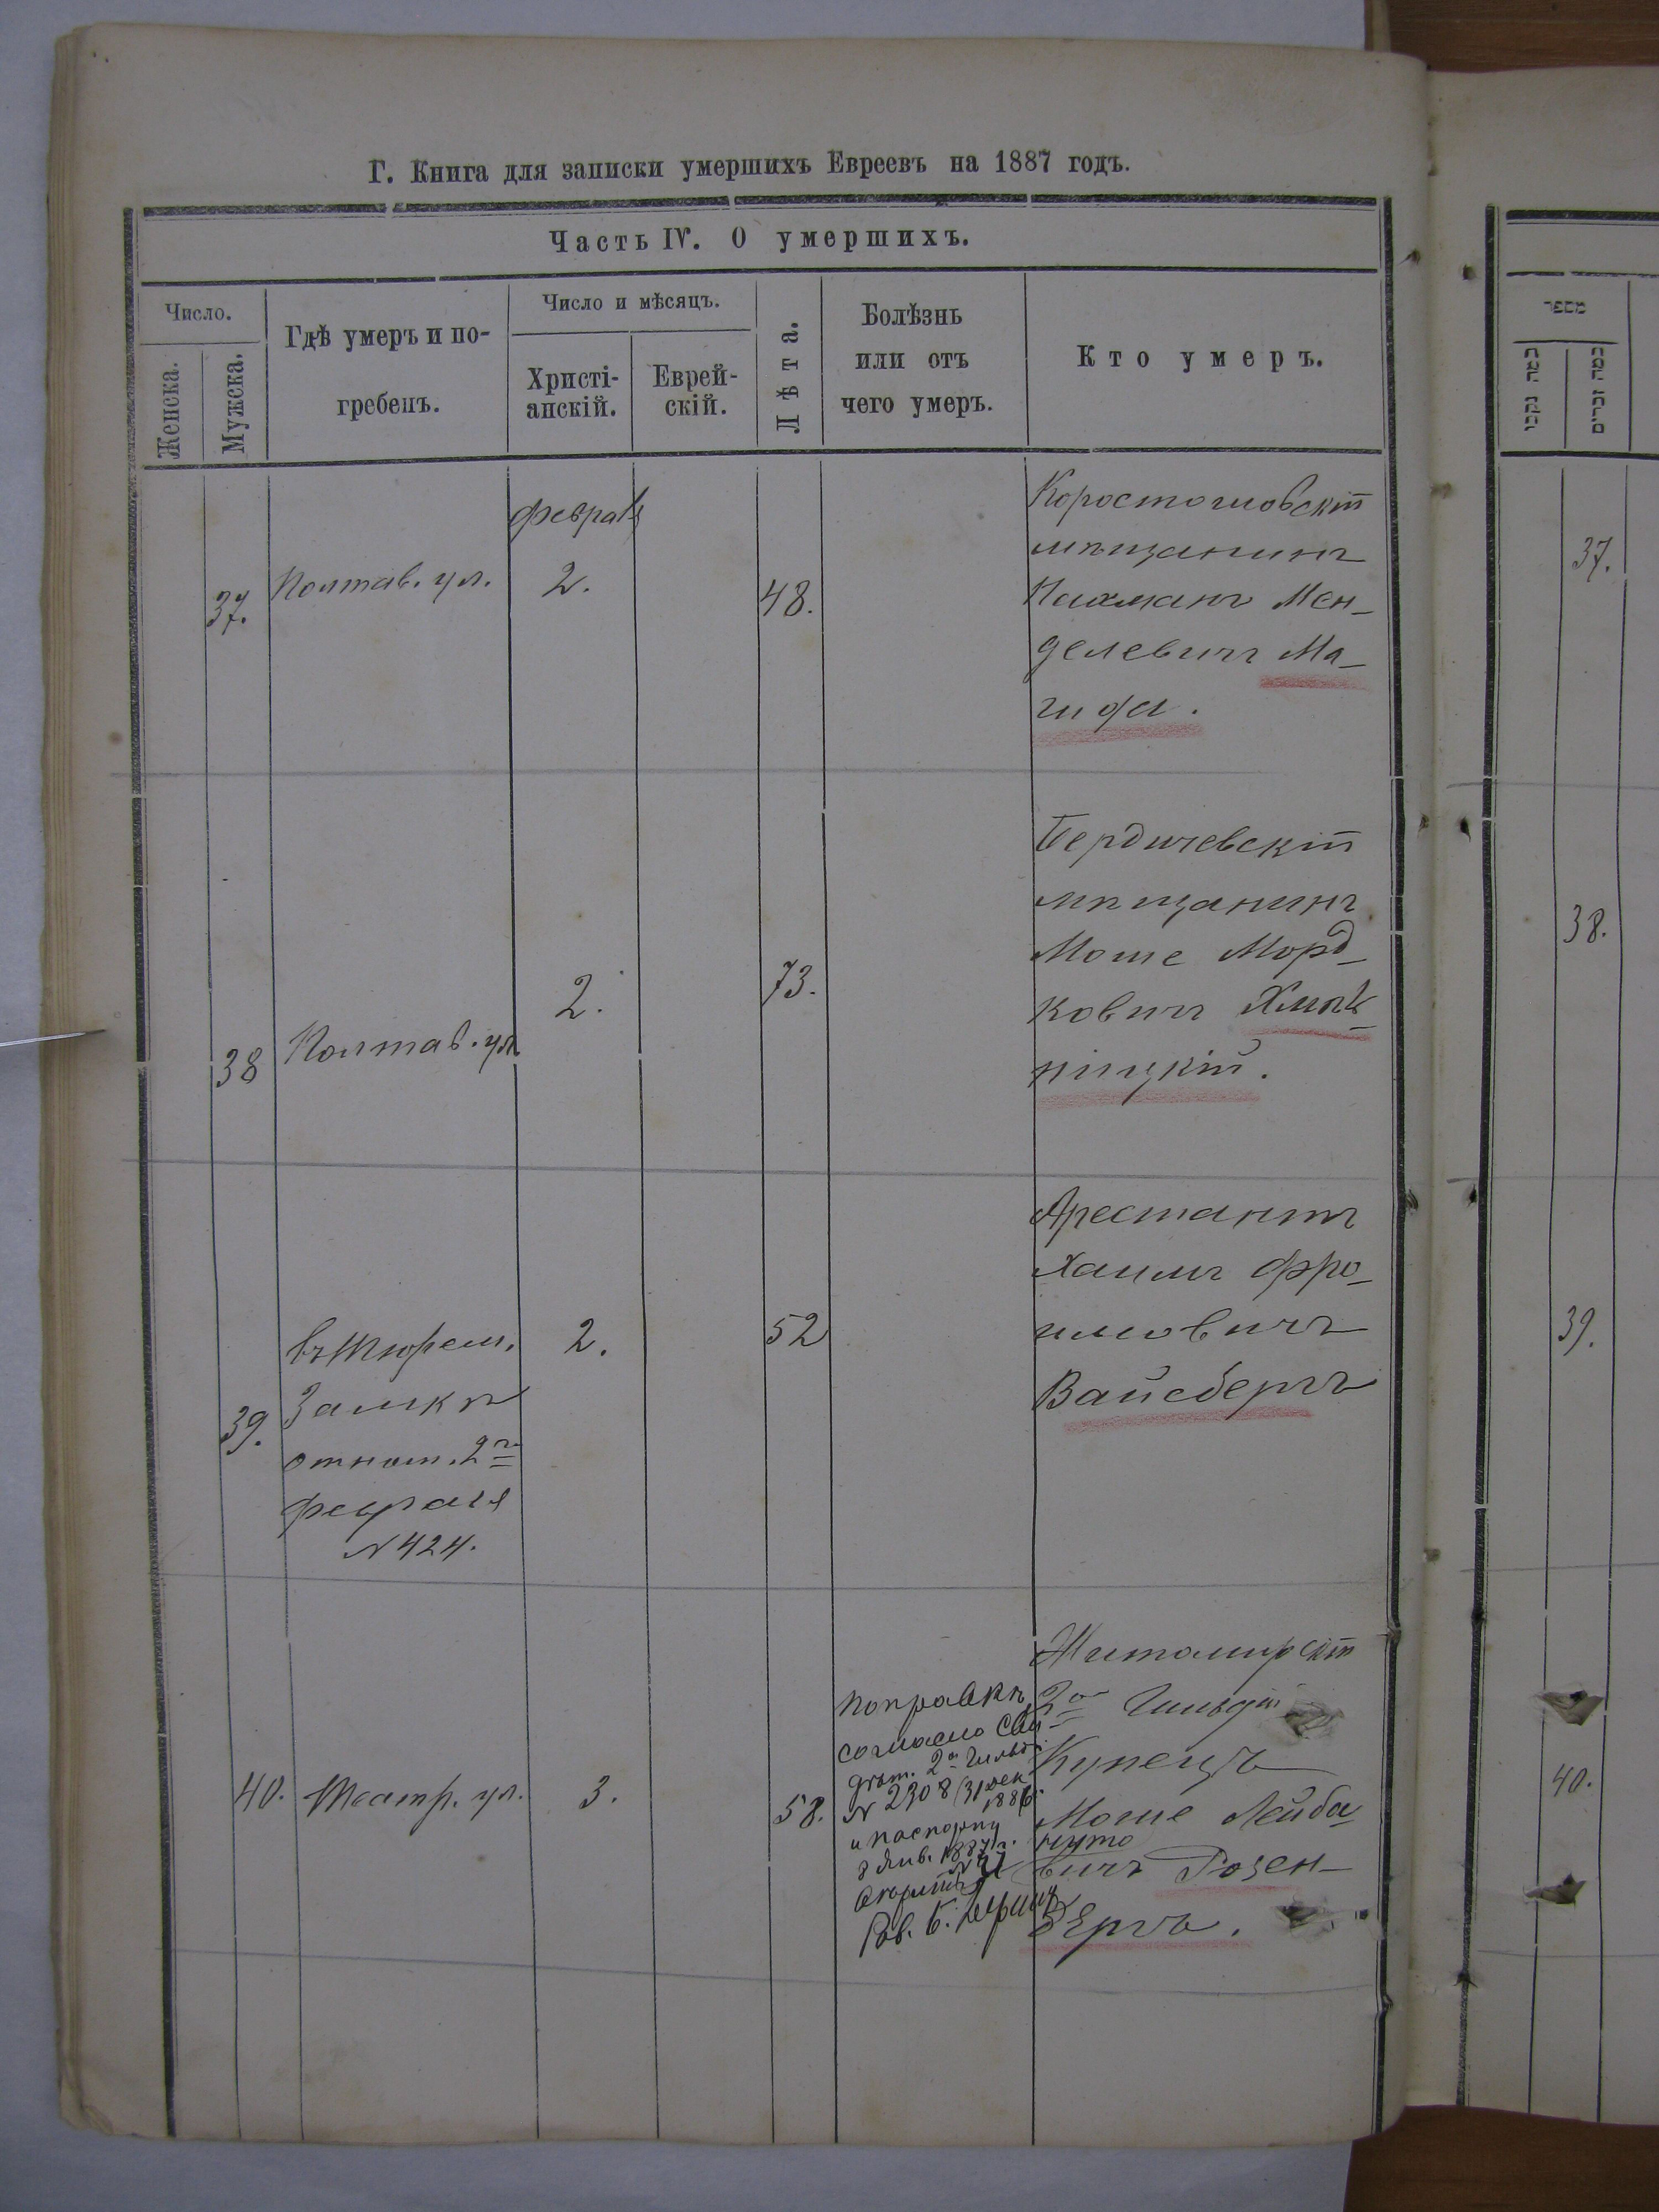 Г. Книга для записки умершихъ Евреевъ на 1887 годъ.
Часть IV. О умершихъ.
Число.
Женска.
Мужска.
Гдѣ умеръ и по-
гребенъ.
Число и мѣсяцъ.
Христі-
анскій.
Еврей-
скій.
Лѣта.
Болѣзнь
или отъ
чего умеръ.
Кто умеръ.
מספר
37.
Полтав. ул.
февраля
2.
48.
Коростышовскій
мѣщанинъ
Нахманъ Мен-
делевичъ Ма-
гида.
37.
38
Полтав. ул.
2.
73.
Бердичевскій
мѣщанинъ
Моше Морд-
ковичъ Хмѣль-
ницкій.
38.
39.
въ Тюрем.
Замкѣ
отнош. 2го
февраля
№ 424.
2.
52
Арестантъ
Хаимъ Фро-
имовичъ
Вайсбергъ
39.
40.
Театр. ул.
3.
58.
Поправкѣ
согласно Сви
дѣт. 2й гильд.
№ 2308 (31 дек
1886
и паспорту
8 Янв. 1887 г.
Рав. Б.
Житомирскій
2ой Гильдіи
Купецъ
Моше Лейба
вичъ Розен-
бергъ.
40.